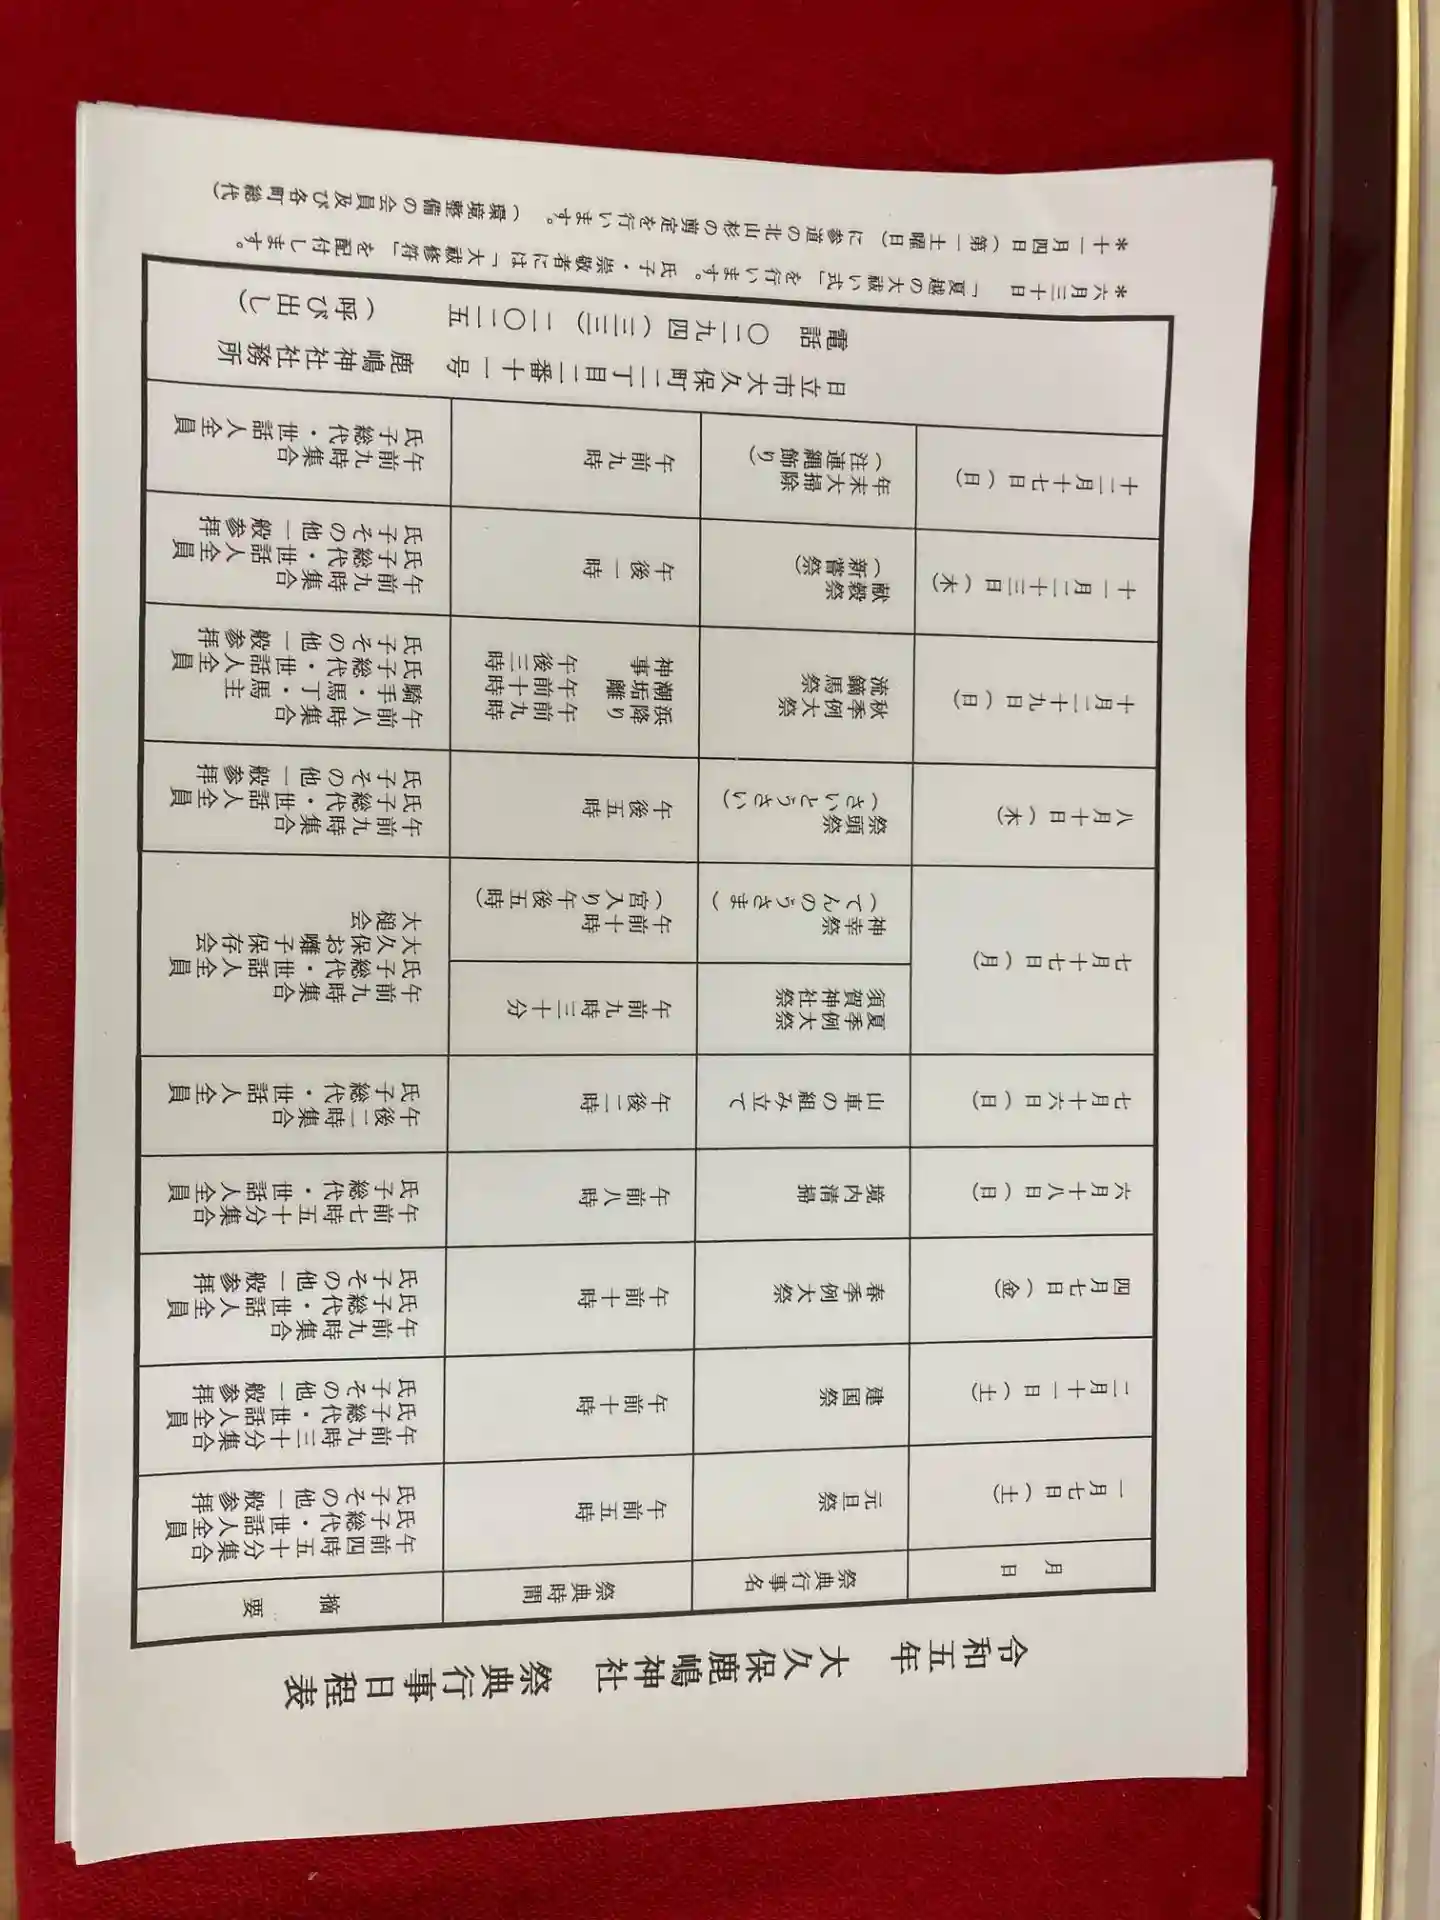 令和五年　大久保鹿嶋神社　祭典行事日程表
月　日
祭典行事名
祭典時間
摘　要
一月七日（土）
元旦祭
午前五時
午前四時五十分集合
氏子総代・世話人全員
氏子その他一般参拝
二月十一日（土）
建国祭
午前十時
午前九時三十分集合
氏子総代・世話人全員
氏子その他一般参拝
四月七日（金）
春季例大祭
午前十時
午前九時集合
氏子総代・世話人全員
氏子その他一般参拝
六月十八日（日）
境内清掃
午前八時
午前七時五十分集合
氏子総代・世話人全員
七月十六日（日）
山車の組み立て
午後二時
午後二時集合
氏子総代・世話人全員
七月十七日（月）
夏季例大祭
須賀神社祭
午前九時三十分
神幸祭
（てんのうさま）
午前十時
（宮入り午後五時）
午前九時集合
氏子総代・世話人全員
大久保お囃子保存会
大槌会
八月十日（木）
祭頭祭
（さいとうさい）
午後五時
午前九時集合
氏子総代・世話人全員
氏子その他一般参拝
十月二十九日（日）
秋季例大祭
流鏑馬祭
浜降り　午前九時
潮垢離　午前十時
神事　午後三時
午前八時集合
騎手・馬丁・馬主
氏子総代・世話人全員
氏子その他一般参拝
十一月二十三日（木）
献穀祭
（新嘗祭）
午後一時
午前九時集合
氏子総代・世話人全員
氏子その他一般参拝
十二月十七日（日）
年末大掃除
（注連縄飾り）
午前九時
午前九時集合
氏子総代・世話人全員
日立市大久保町二丁目二番十一号　鹿嶋神社社務所
電話　〇二九四（三三）二〇二五　（呼び出し）
＊六月三十日　「夏越の大祓い式」を行います。氏子・崇敬者には「大祓修符」を配付します。
＊十一月四日（第一土曜日）に参道の北山杉の剪定を行います。（環境整備の会員及び各町総代）